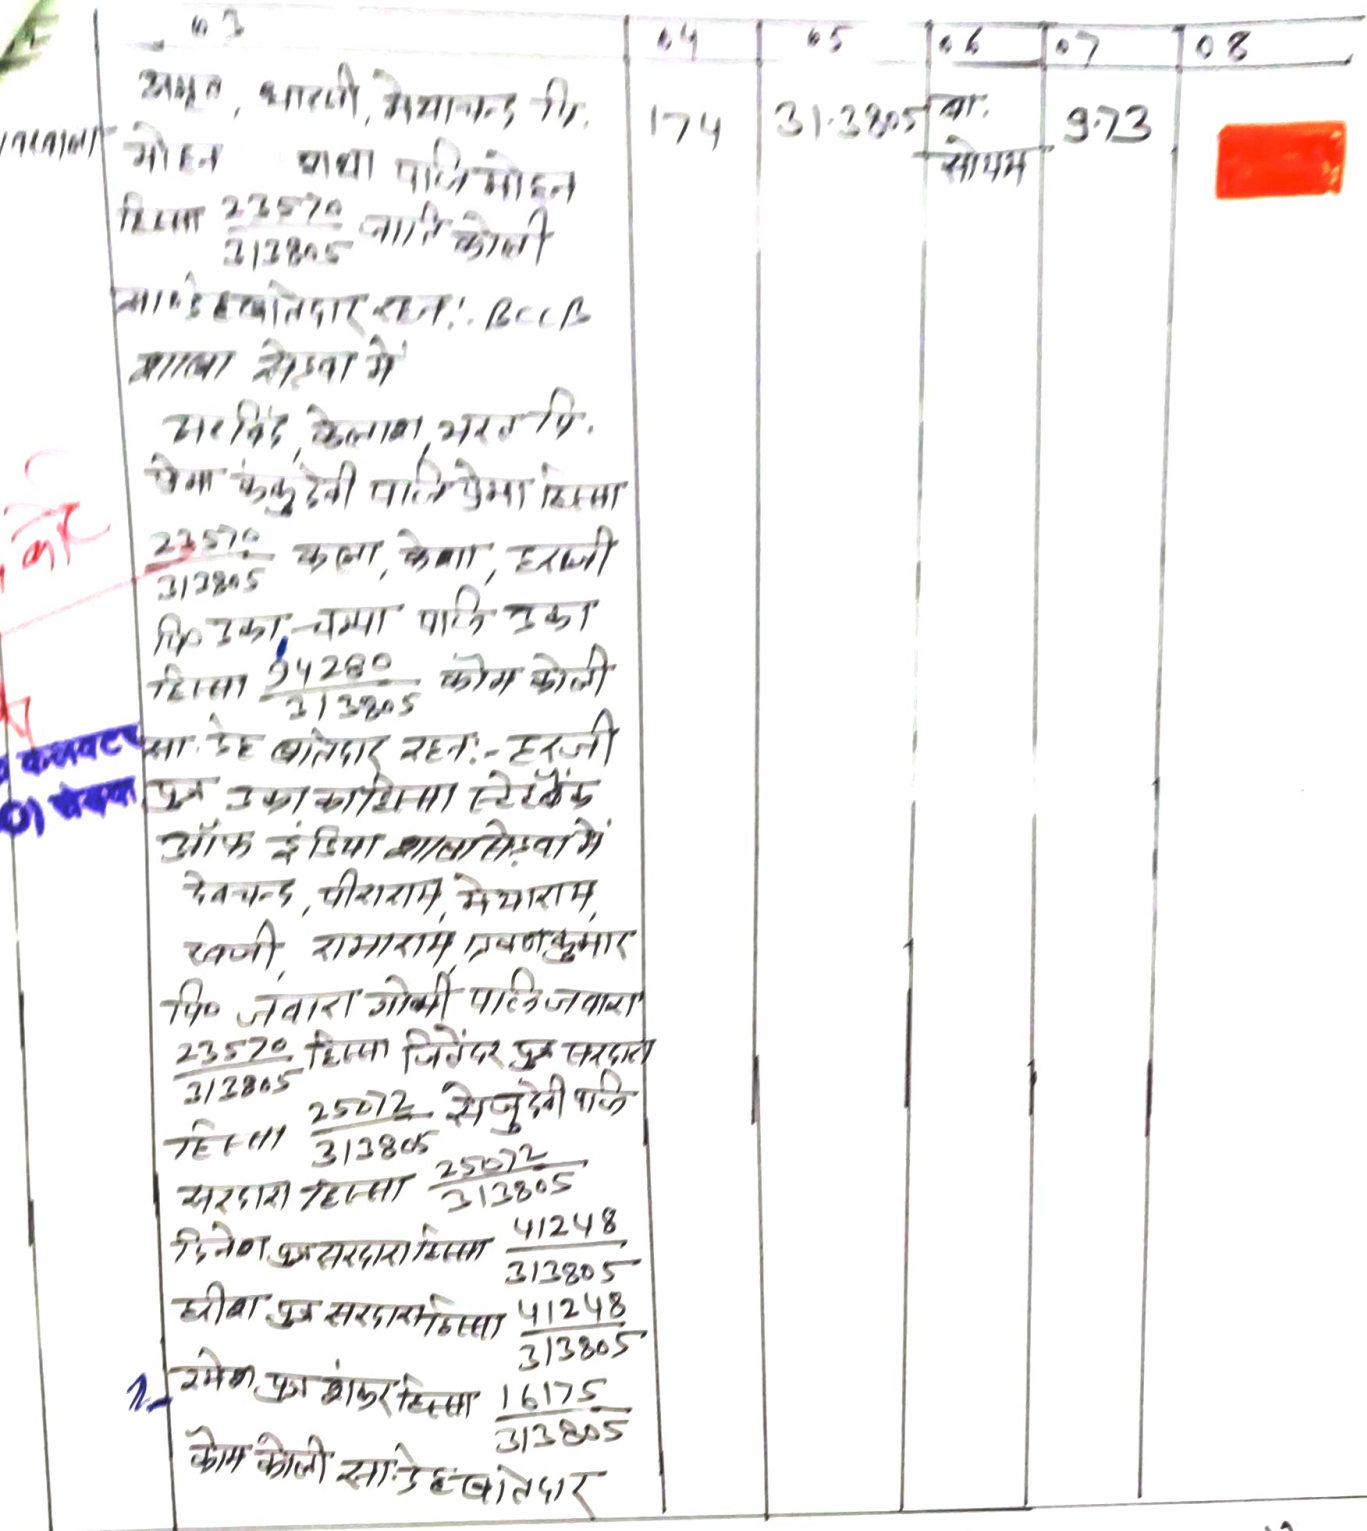 03 04 05 06 07 08
अमृत, भारजी, मेघाचन्द पि. 174 31.3805 बा. 9.73
मोहन पत्नि मोहन सोयम
हिस्सा 23570/313805 जाति कोली
सा.देह खातेदार रहन:- BCCB
शाखा सेड़वा में
अरविंद, कैलाश, भरत पि.
पेमा कंकुदेवी पत्नि पेमा हिस्सा
23570/313805 कला, केशा, हरजी
पि० उका, चम्पा पत्नि उका
हिस्सा 94280/313805 कौम कोली
सा. देह खातेदार रहन:- हरजी
कलक्टर
पुत्र उका का हिस्सा स्टेट बैंक
ऑफ इंडिया शाखा सेड़वा में
देवचन्द, पीराराम, मेघाराम,
रामाराम, श्रवणकुमार
पि० जवारा गोमी पत्नि जवारा
23570/313805 हिस्सा जितेंदर पुत्र सरदारा
हिस्सा 25072/313805 सेजुदेवी पत्नि
सरदारा हिस्सा 25072/313805
दिनेश पुत्र सरदारा हिस्सा 41248/313805
हरीश पुत्र सरदारा हिस्सा 41248/313805
रमेश पुत्र शंकर हिस्सा 16175/313805
कौम कोली सा.देह खातेदार